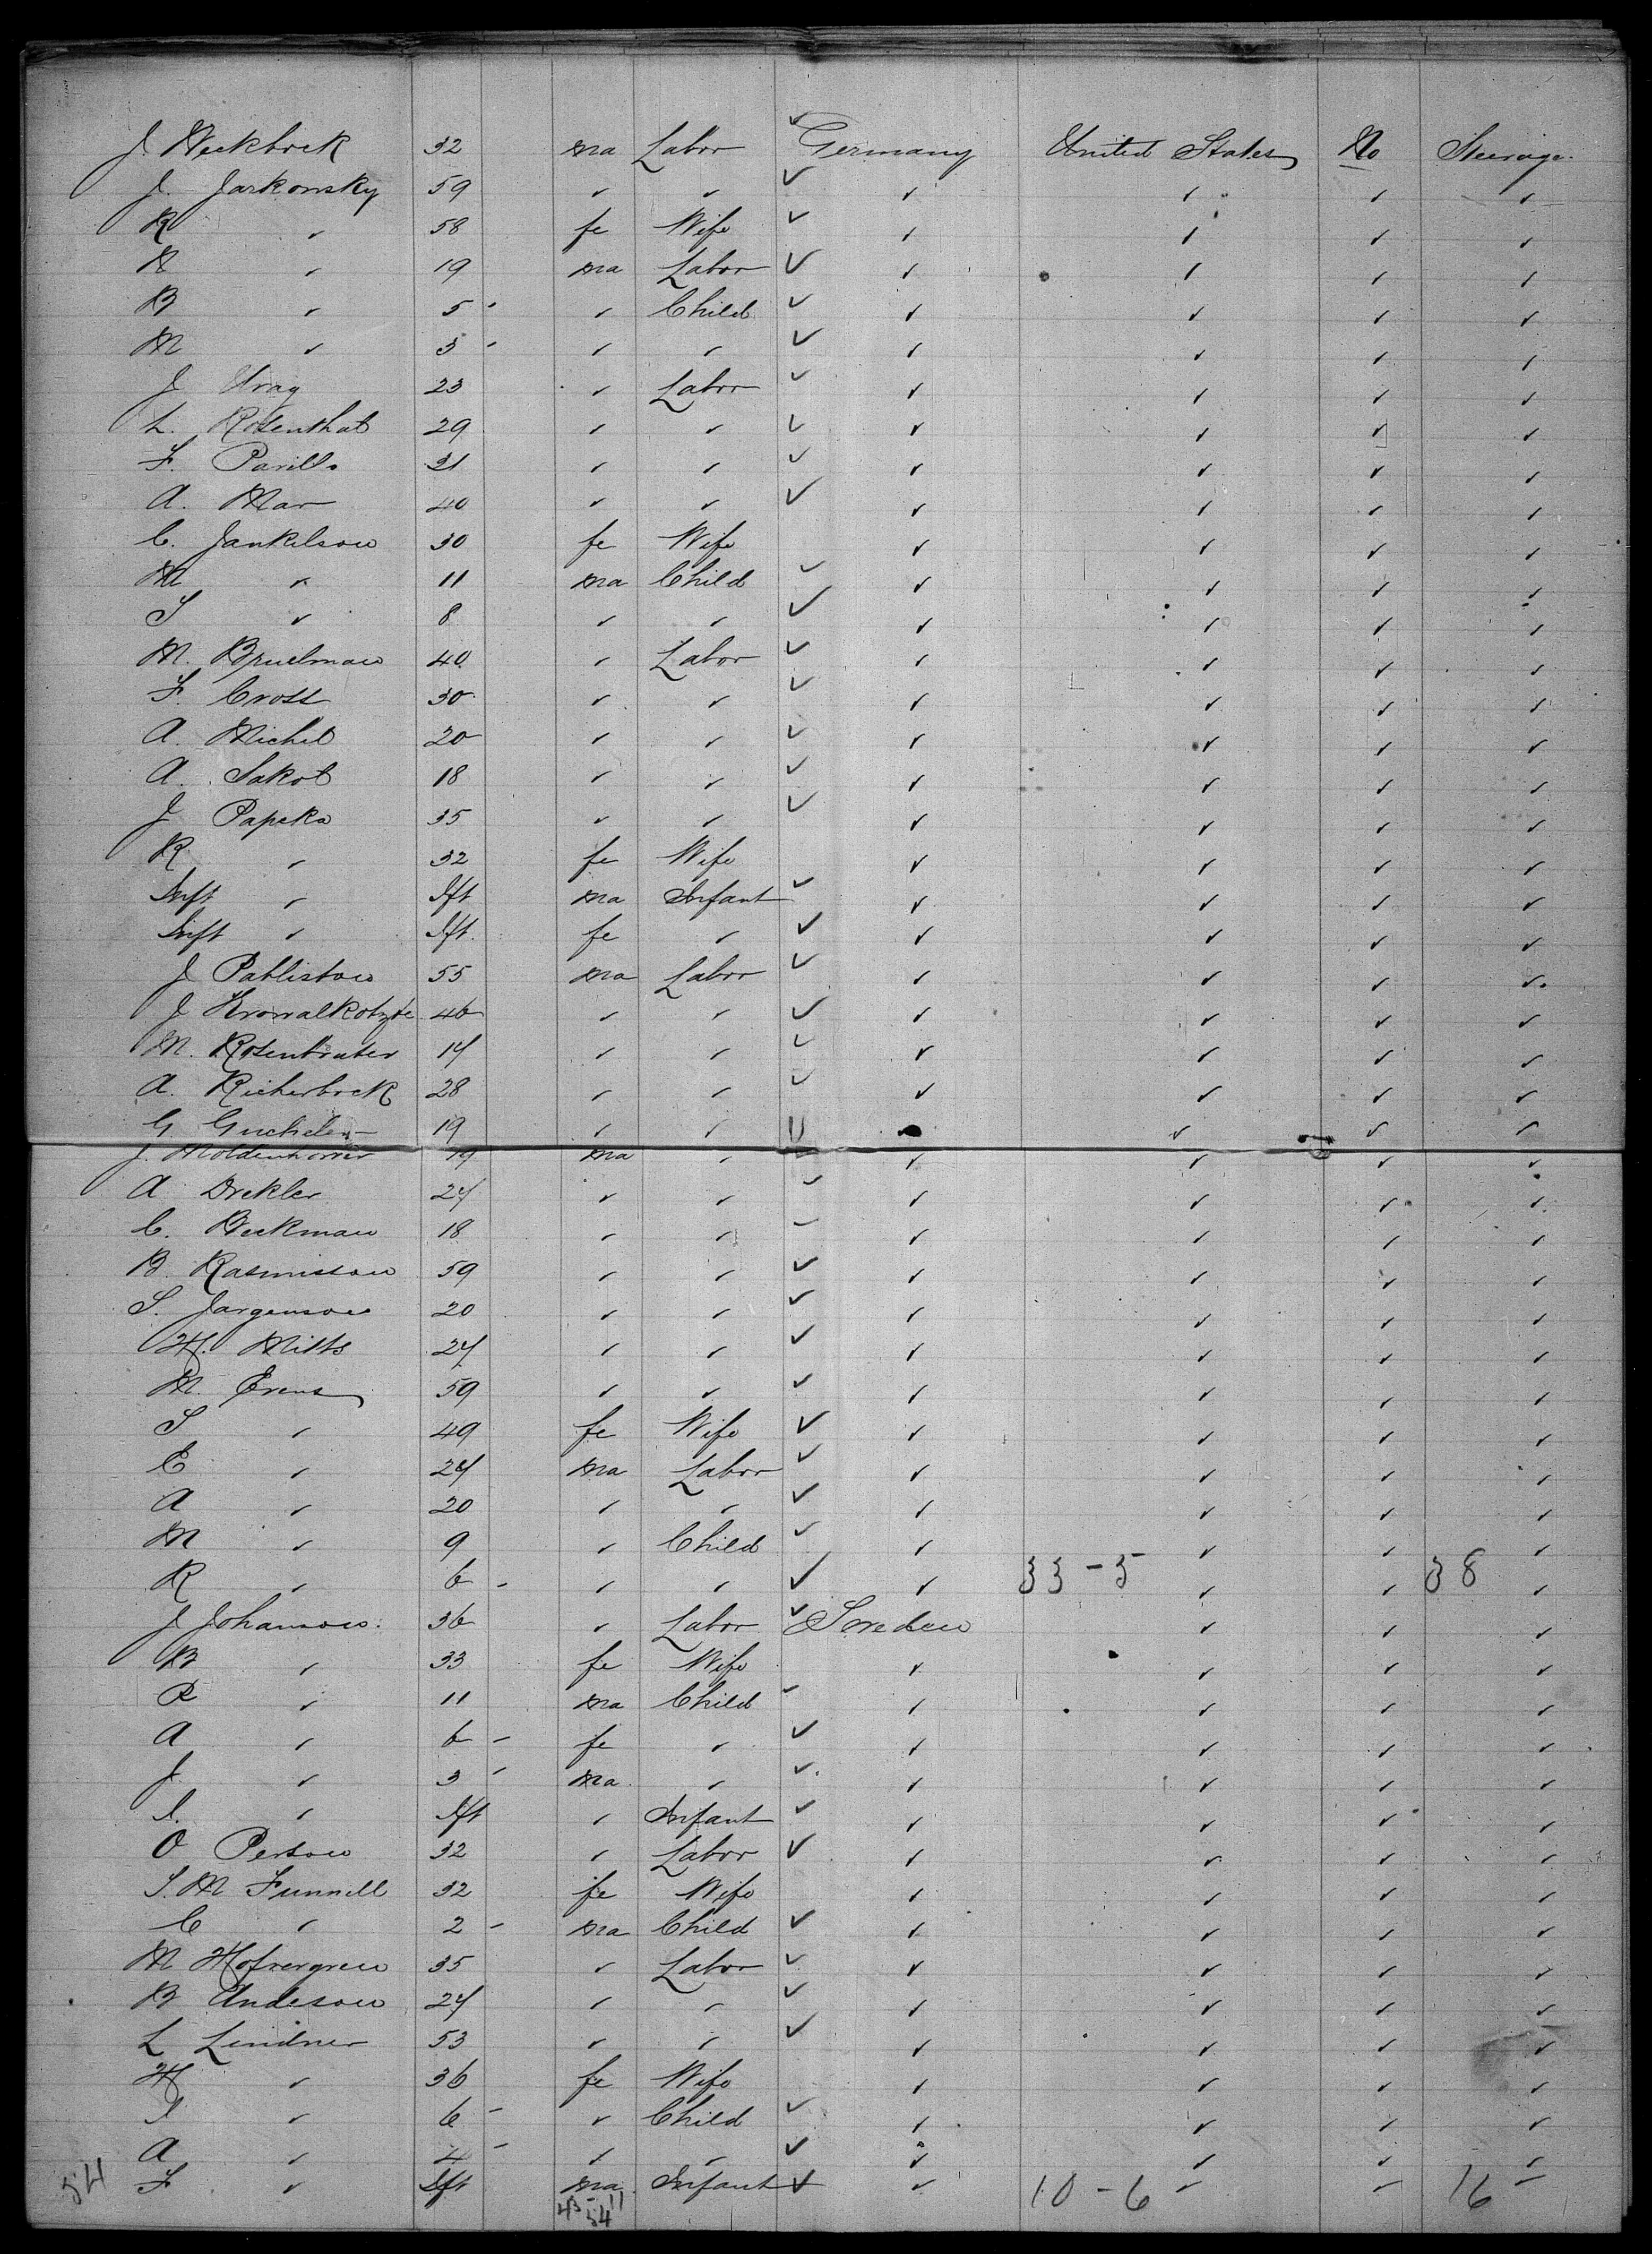 J. Weckbock 32 ma Labor ✓ Germany United States No Steerage.
J. Jarkonsky 59 ✓ ✓ ✓ ✓ ✓ ✓ ✓
R ✓ 58 fe Wife ✓ ✓ ✓ ✓ ✓
N ✓ 19 ma Labor ✓ ✓ ✓ ✓ ✓
B ✓ 5 - ✓ Child ✓ ✓ ✓ ✓ ✓
M ✓ 3 - ✓ ✓ ✓ ✓ ✓ ✓ ✓
J 23 ✓ Labor ✓ ✓ ✓ ✓ ✓
L. Rosenthal 29 ✓ ✓ ✓ ✓ ✓ ✓ ✓
F. Parills 31 ✓ ✓ ✓ ✓ ✓ ✓ ✓
A. Mar 40 ✓ ✓ ✓ ✓ ✓ ✓ ✓
C. Jankelson 30 fe Wife ✓ ✓ ✓ ✓
M ✓ 11 ma Child ✓ ✓ ✓ ✓ ✓
S ✓ 8 ✓ ✓ ✓ ✓ ✓ ✓ ✓
M. 40 ✓ Labor ✓ ✓ ✓ ✓ ✓
F. Cross 30 ✓ ✓ ✓ ✓ ✓ ✓ ✓
A. Michel 20 ✓ ✓ ✓ ✓ ✓ ✓ ✓
A. Sakol 18 ✓ ✓ ✓ ✓ ✓ ✓ ✓
J Papeka 35 ✓ ✓ ✓ ✓ ✓ ✓ ✓
R ✓ 32 fe Wife ✓ ✓ ✓ ✓
Inft ✓ Ift ma Infant ✓ ✓ ✓ ✓ ✓
Inft ✓ Ift. fe ✓ ✓ ✓ ✓ ✓ ✓
J Pablistow 55 ma Labor ✓ ✓ ✓ ✓ ✓
J 46 ✓ ✓ ✓ ✓ ✓ ✓ ✓
M. 14 ✓ ✓ ✓ ✓ ✓ ✓ ✓
A. Richerbock 28 ✓ ✓ ✓ ✓ ✓ ✓ ✓
G. 19 ✓ ✓ ✓ ✓ ✓
J. Moldenhorrer 19 ma ✓ ✓ ✓ ✓ ✓
A Drekler 24 ✓ ✓ ✓ ✓ ✓ ✓ ✓
C. Beckman 18 ✓ ✓ ✓ ✓ ✓ ✓ ✓
B Rasmisson 59 ✓ ✓ ✓ ✓ ✓ ✓ ✓
S. Jargenson 20 ✓ ✓ ✓ ✓ ✓ ✓ ✓
H. Milts 24 ✓ ✓ ✓ ✓ ✓ ✓ ✓
M. Evens 59 ✓ ✓ ✓ ✓ ✓ ✓ ✓
S ✓ 49 fe Wife ✓ ✓ ✓ ✓ ✓
E ✓ 24 ma Labor ✓ ✓ ✓ ✓ ✓
A ✓ 20 ✓ ✓ ✓ ✓ ✓ ✓ ✓
M ✓ 9 ✓ Child ✓ ✓ ✓ ✓ ✓
R ✓ 6 - ✓ ✓ ✓ ✓ 33-5 ✓ ✓ 38 ✓
J Johanson 36 ✓ Labor ✓ Sweden ✓ ✓ ✓
B ✓ 33 fe Wife ✓ ✓ ✓ ✓
P ✓ 11 ma Child ✓ ✓ ✓ ✓ ✓
A ✓ 6 - fe ✓ ✓ ✓ ✓ ✓ ✓
J ✓ 3 - ma ✓ ✓ ✓ ✓ ✓ ✓
I. ✓ Ift ✓ Infant ✓ ✓ ✓ ✓ ✓
O Person 32 ✓ Labor ✓ ✓ ✓ ✓ ✓
S. M Funnell 32 fe Wife ✓ ✓ ✓ ✓
C ✓ 2 - ma Child ✓ ✓ ✓ ✓ ✓
M Hofvergren 35 ✓ Labor ✓ ✓ ✓ ✓ ✓
B Andeson 24 ✓ ✓ ✓ ✓ ✓ ✓ ✓
L Lindner 53 ✓ ✓ ✓ ✓ ✓ ✓ ✓
H ✓ 36 fe Wife ✓ ✓ ✓ ✓
I ✓ 6 - ✓ Child ✓ ✓ ✓ ✓ ✓
A ✓ 4 - ✓ ✓ ✓ ✓ ✓ ✓ ✓
54 F ✓ Ift ma. Infant ✓ ✓ 10-6 ✓ ✓ 16 ✓
43-11
54